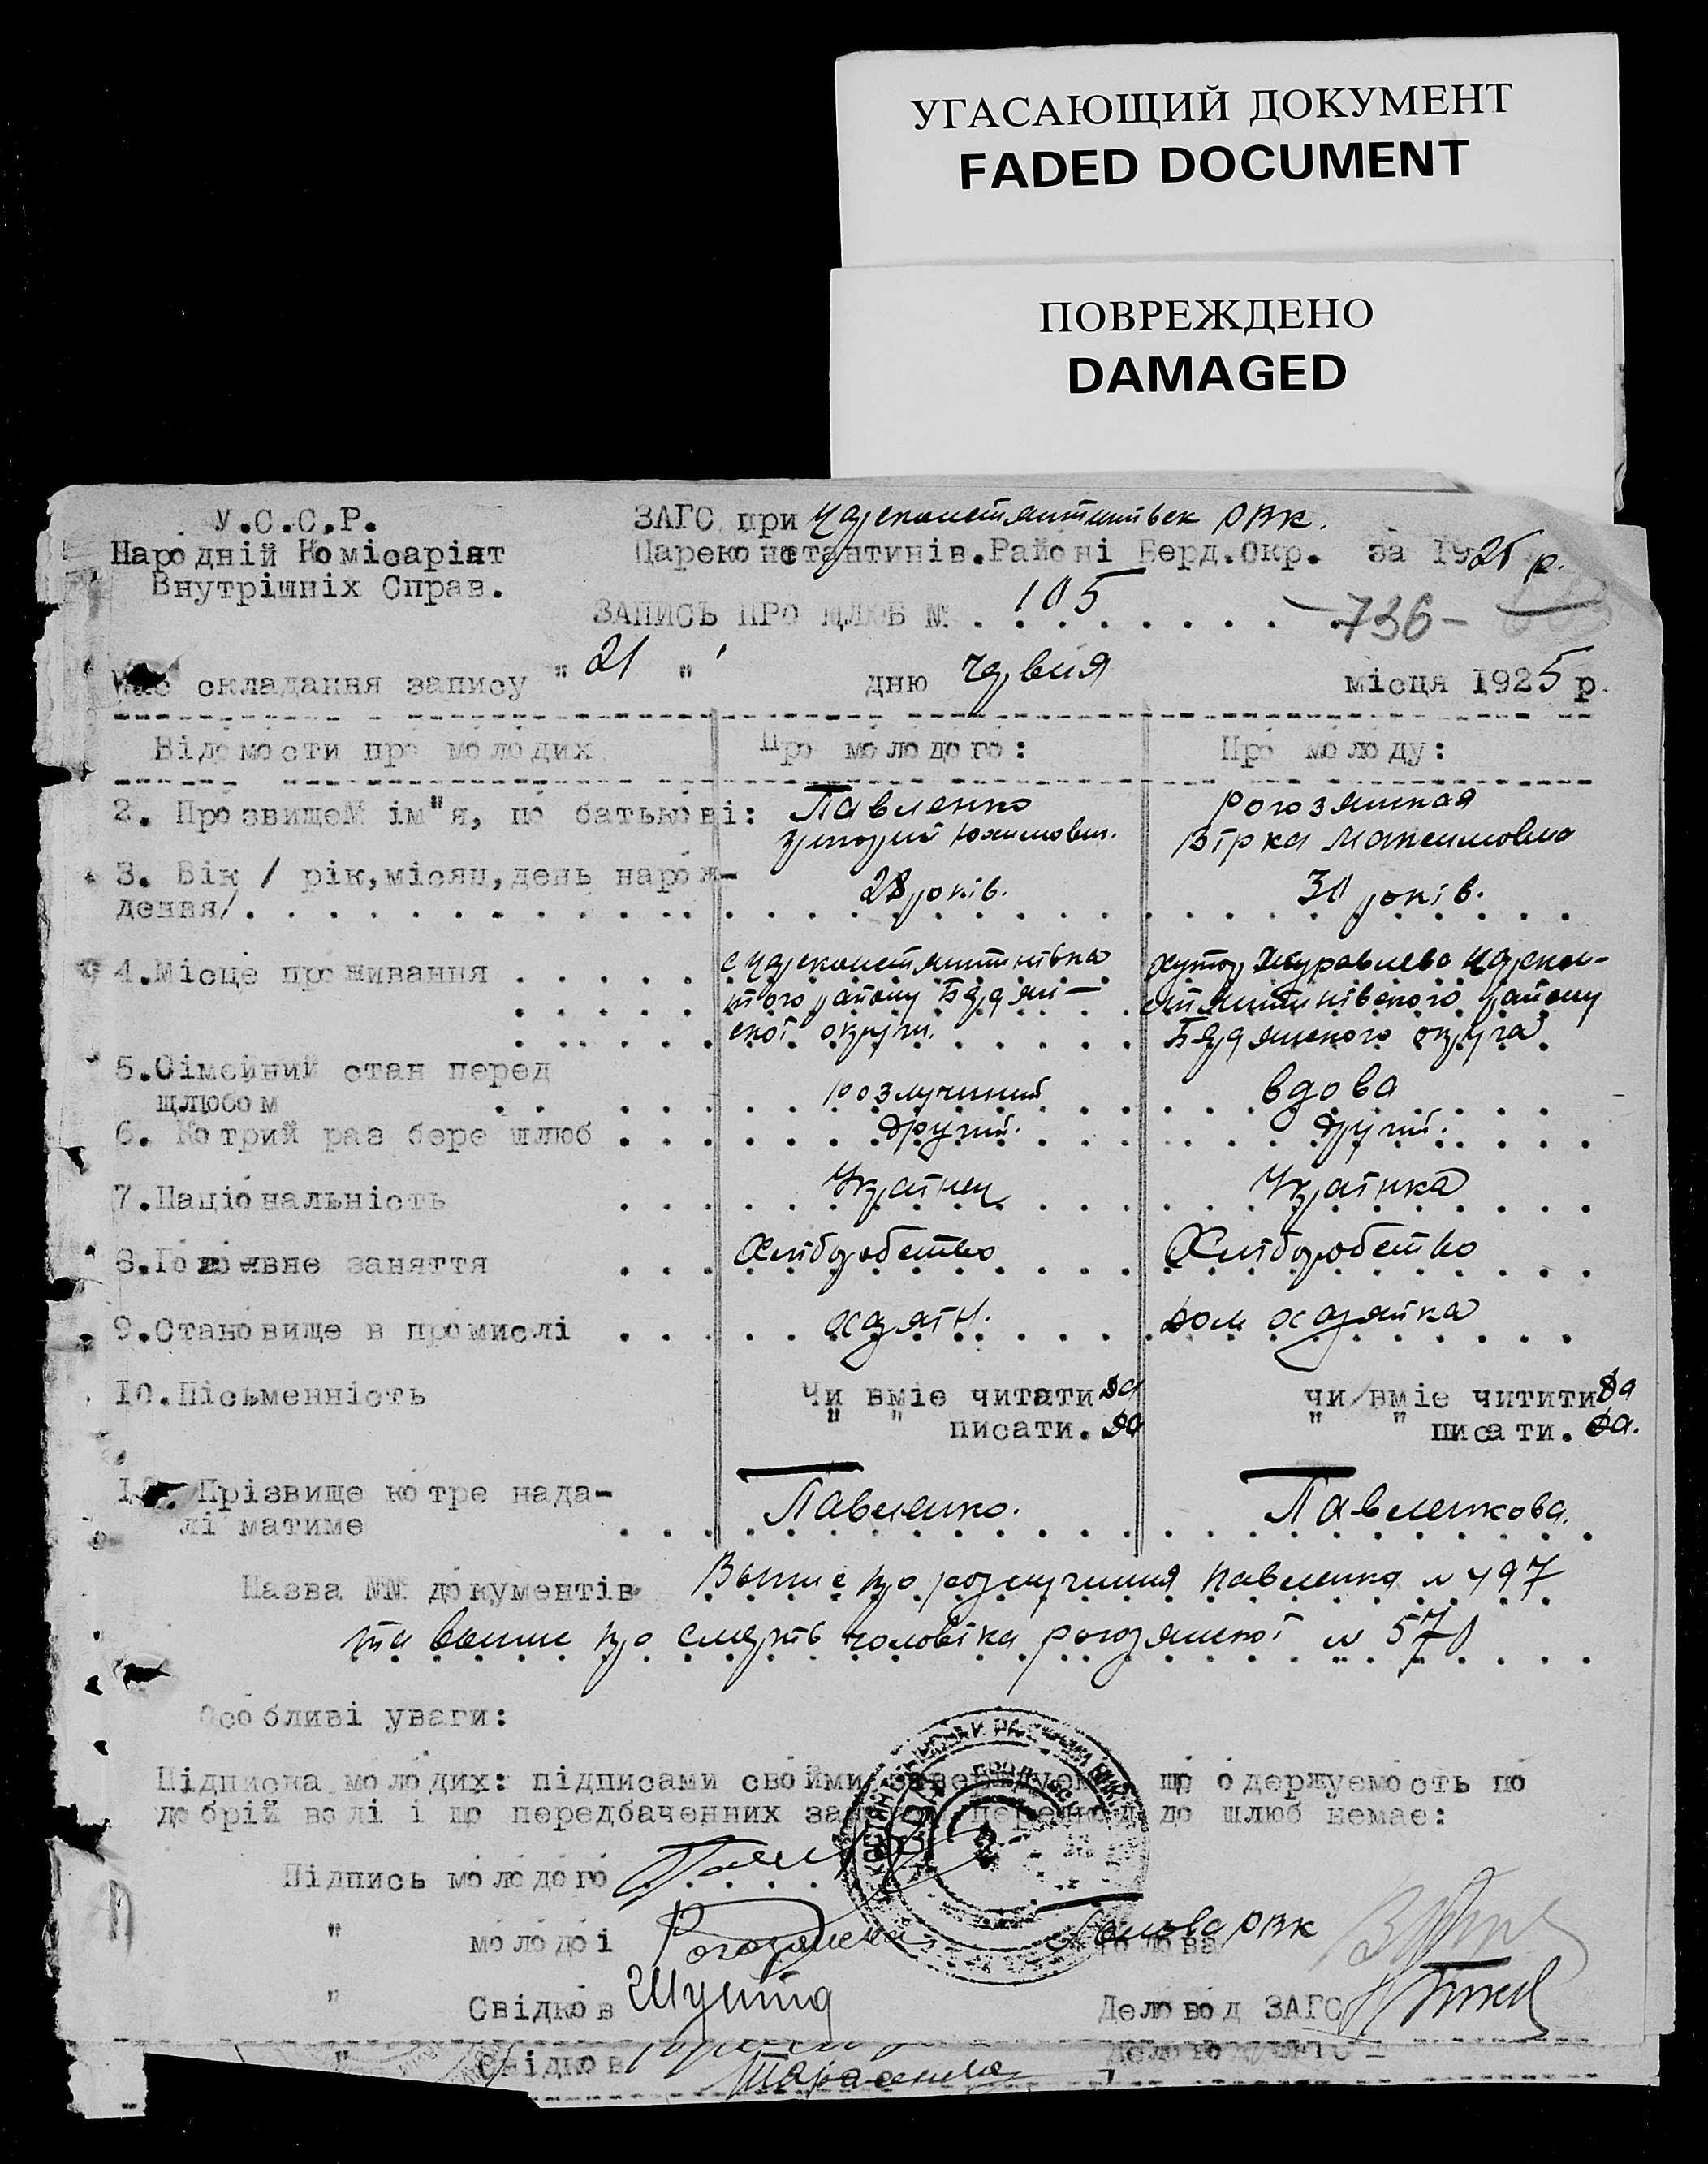 УГАСАЮЩИЙ ДОКУМЕНТ
FADED DOCUMENT
ПОВРЕЖДЕНО
DAMAGED
У.С.С.Р.
Народній Комісаріят
Внутрішніх Справ.
ЗАГС при Цареконстянтинівск РВК.
Цареконстантинів.Районі Берд.Окр. за 1925 р.
ЗАПИСЬ ПРО ШЛЮБ № 105
-736-
Час складання запису "21" дню червня місця 1925 р.
Відомости про молодих Про молодого: Про молоду:
2. Прозвищем ім"я, по батькові: Павленко Рогозянская
Григорий Юхимович. Вірка Максимовна
3. Вік / рік,місяц,день народж- 28 років. 30 років.
дення/
4.Місце проживання с Цареконстянтинівка хутор Журавлева Царекон-
того району Бердян- стянтинівского району
скоі округи. Бердянского округа
5.Сімейний стан перед
шлюбом розлучений вдова
6. Котрий раз бере шлюб другий. другий.
7.Національність Украінец Украінка
8.Головне заняття Хліборобство Хліборобство
9.Становище в промислі хазяін. дом хазяйка
10.Пісьменність Чи вміє читати да чи вміє читити да
" " писати. да " " писати. да.
Прізвище котре нада-
лі матиме Павленко. Павленкова.
Назва №№ документів Выпис про розлучення Павленка №497
та выпис про смерть чоловіка Рогозянскоі № 570
Особливі уваги:
Підписка молодих: підписами своїми що одержуемость по
добрій волі і що передбаченних до шлюб немає:
Підпись молодого
" молодоі Рогозянска Голова РВК
Голова
" Свідків Шушпа Деловод ЗАГС
" Свідків
Тарасенко